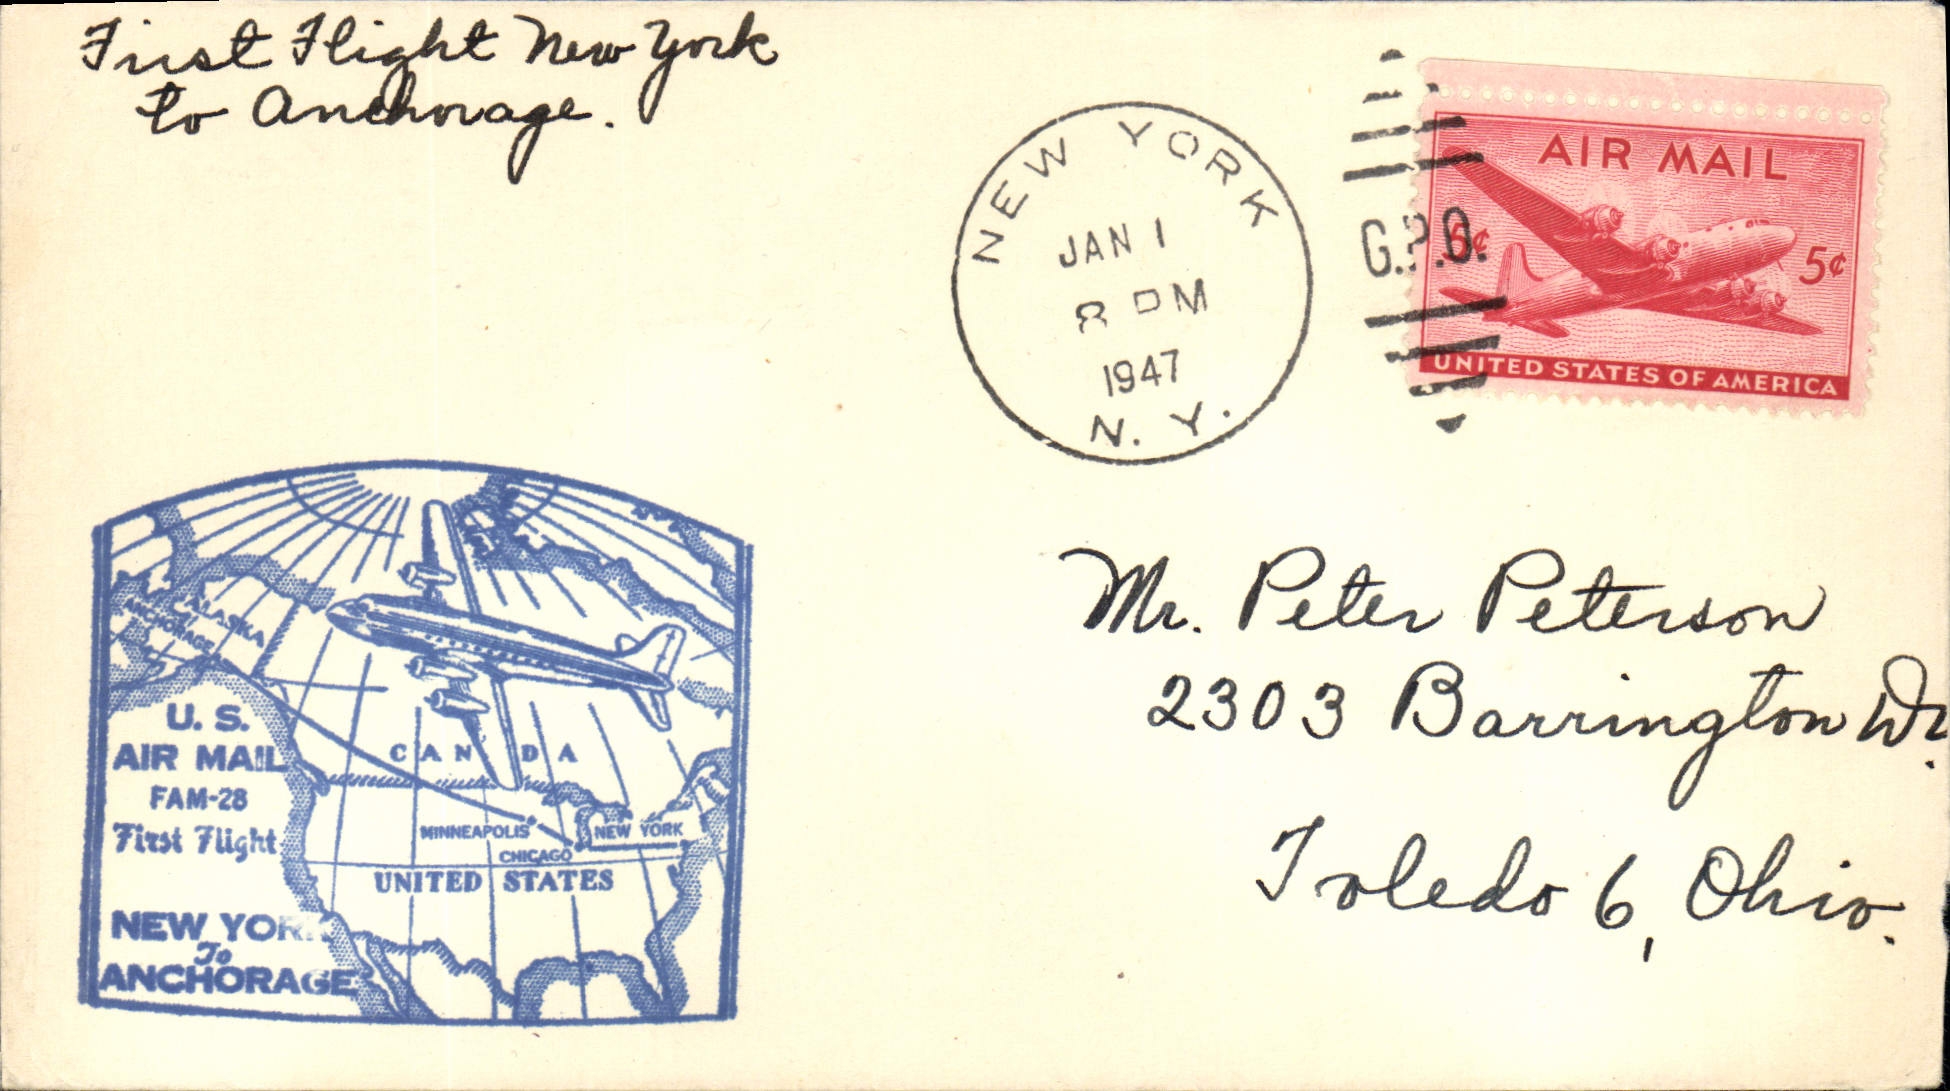 First Flight New York
to Anchorage.
NEW YORK
JAN 1
8 PM
1947
N. Y.
G.P.O.
AIR MAIL
5¢ 5¢
UNITED STATES OF AMERICA
Mr. Peter Peterson
2303 Barrington Dr.
Toledo 6, Ohio.
ALASKA
ANCHORAGE
U. S.
AIR MAIL
FAM-28
First Flight
NEW YORK
To
ANCHORAGE
CANADA
MINNEAPOLIS
NEW YORK
CHICAGO
UNITED STATES